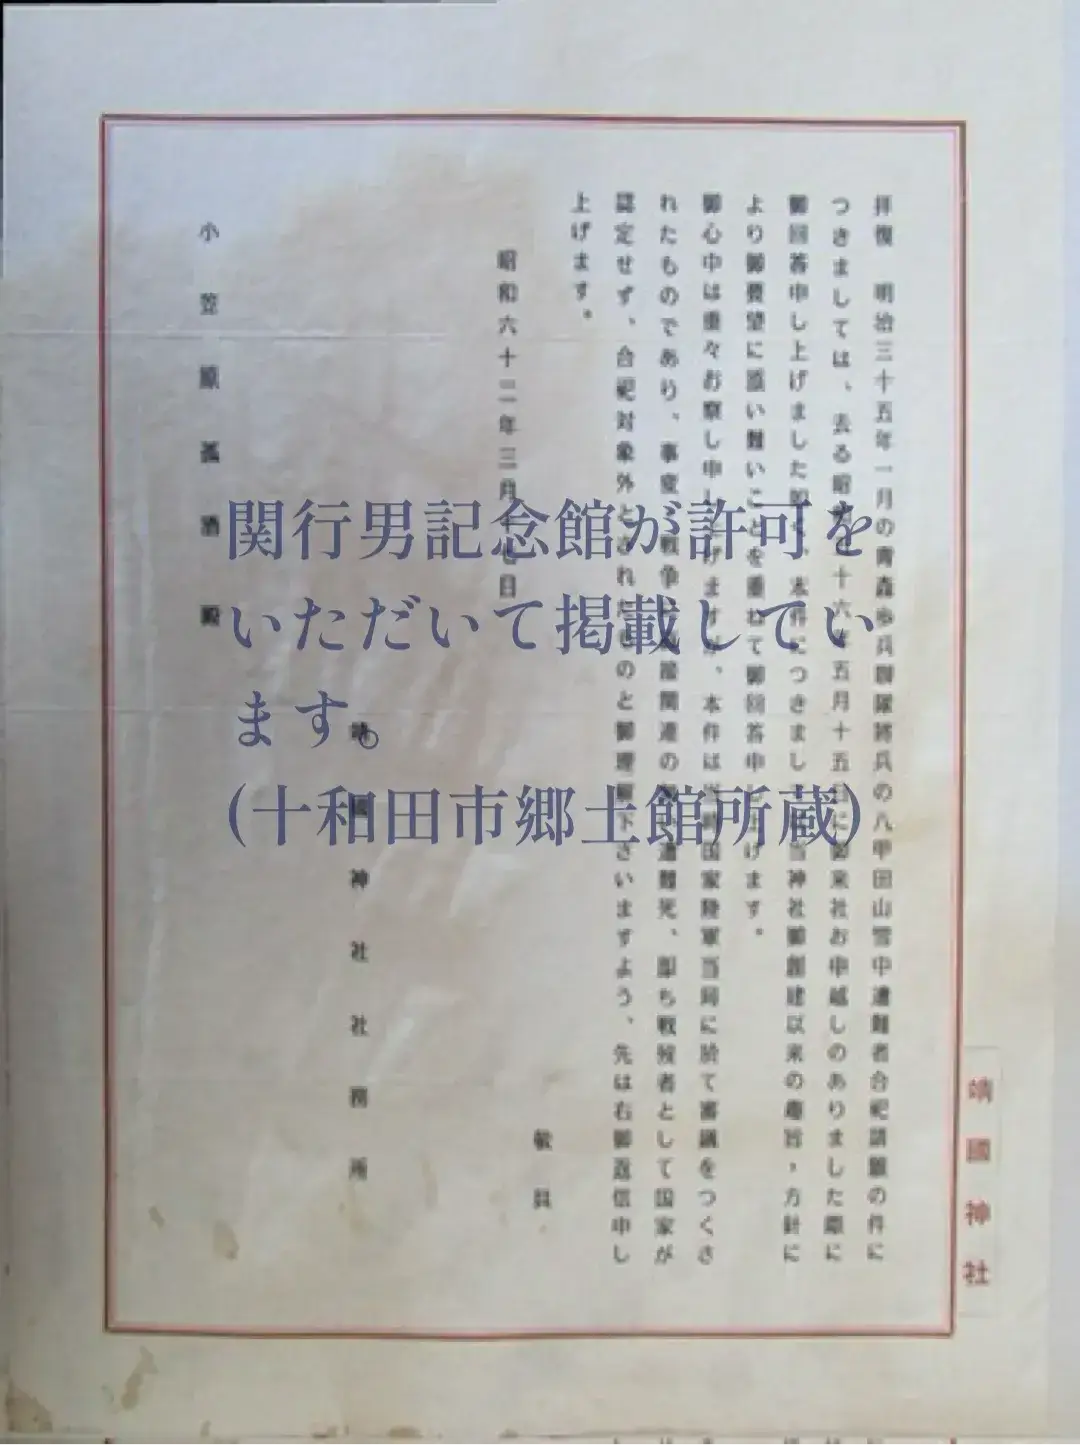 拝復 明治三十五年一月の青森歩兵聯隊将兵の八甲田山雪中遭難者合祀請願の件に
つきましては、去る昭 十六年五月十五 に御来社お申越しのありました際に
御回答申し上げました 、本件につきまし 当神社御創建以来の趣旨・方針に
より御要望に添い難いことを重ねて御回答申し上げます。
御心中は重々お察し申し上げますが、本件は当 国家陸軍当局に於て審議をつくさ
れたものであり、事変 戦争 接関連の 遭難死、即ち戦歿者として国家が
認定せず、合祀対象外とされた ものと御理解下さいますよう、先は右御返信申し
上げます。
敬具
昭和六十二年三月 日
靖國神社社務所
小笠原孤酒殿
靖國神社
関行男記念館が許可を
いただいて掲載してい
ます。
(十和田市郷土館所蔵)